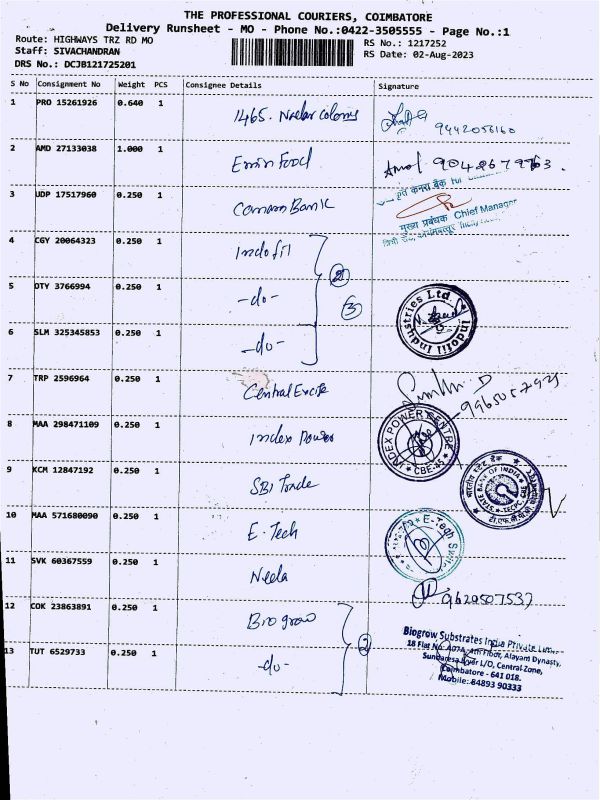 THE PROFESSIONAL COURIERS, COIMBATORE
Delivery Runsheet - MO - Phone No.:0422-3505555 - Page No.:1
Route: HIGHWAYS TRZ RD MO
RS No.: 1217252
Staff: SIVACHANDRAN
RS Date: 02-Aug-2023
DRS No.: DCJB121725201
S No Consignment No Weight PCS Consignee Details Signature
1 PRO 15261926 0.640 1 1465. Colony
9442056160
2 AMD 27133038 1.000 1 Food Amol
3 UDP 17517960 0.250 1 Canara Bank
कृते केनरा बैंक
मुख्य प्रबंधक Chief Manager
4 CGY 20064323 0.250 1 Indofil
2
5 OTY 3766994 0.250 1 -do-
3
Indofil Industries Ltd.
6 SLM 325345853 0.250 1 -do-
7 TRP 2596964 0.250 1 Central Excise
8 MAA 298471109 0.250 1 Index Power
INDEX POWER CENTRE
CBE-45
9 KCM 12847192 0.250 1 SBI Trade
भारतीय स्टेट बैंक
STATE BANK OF INDIA
10 MAA 571680090 0.250 1 E-Tech
E-Tech
11 SVK 60367559 0.250 1 Neela
9629507537
12 COK 23863891 0.250 1 Biogrow
2
Biogrow Substrates India Private
18 Flat No. A07A, 4th Floor, Alayam Dynasty,
Layer L/O, Central Zone,
Coimbatore - 641 018.
Mobile: 84893 90333
13 TUT 6529733 0.250 1 -do-